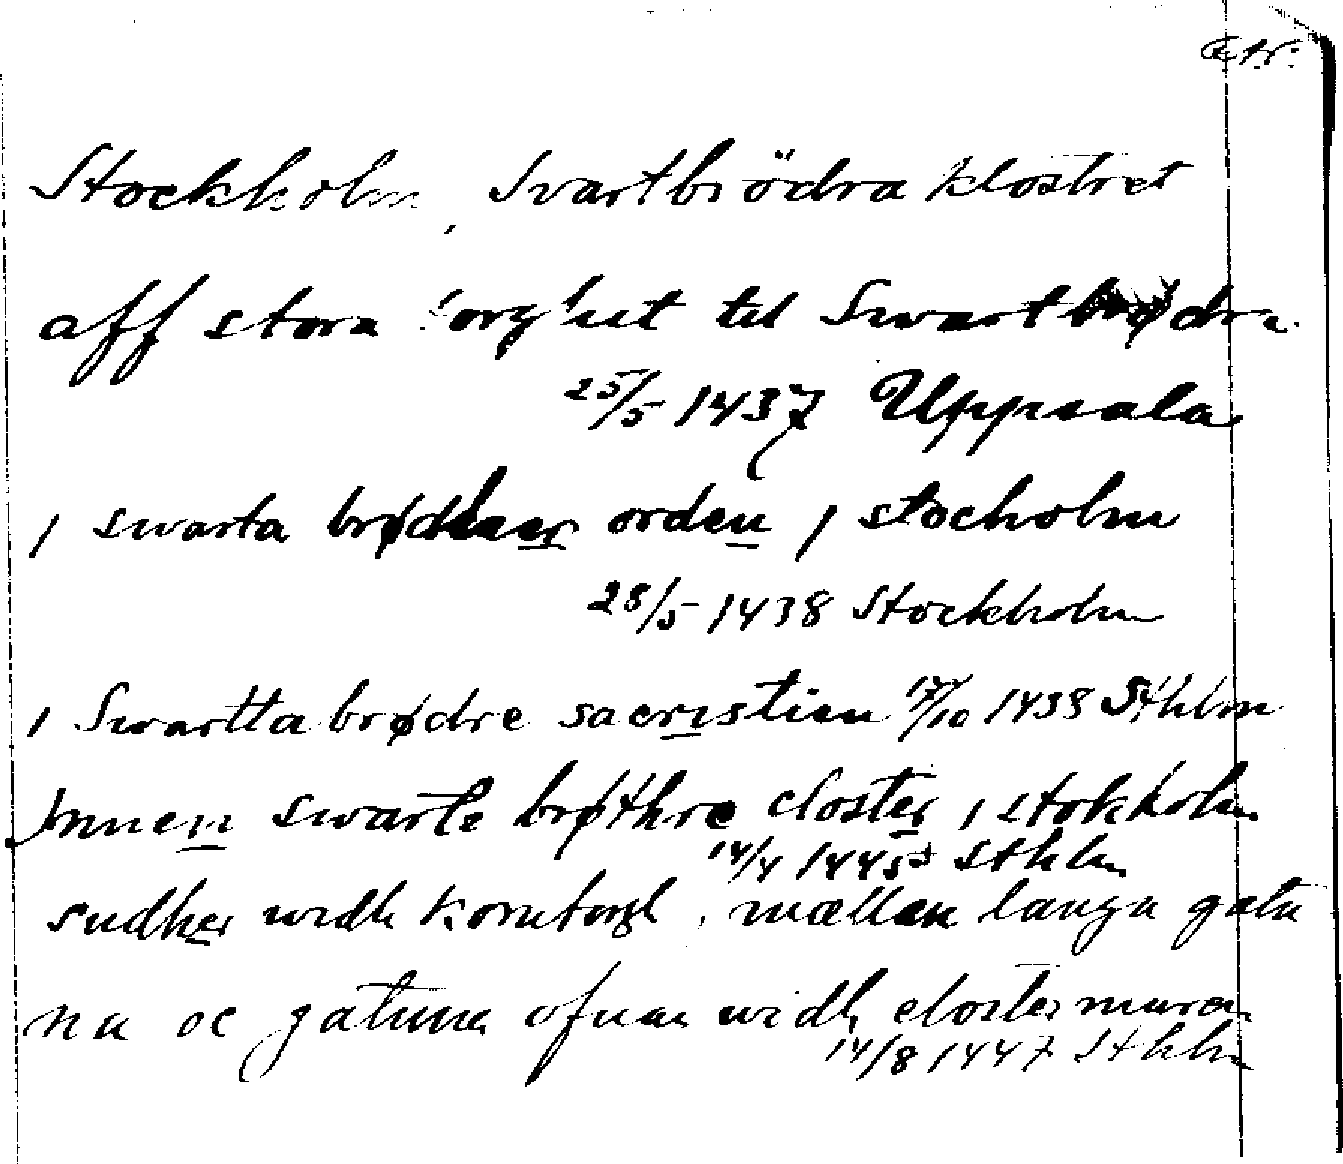 Stockholm, Svartbrödraklostret
aff stora torghit til Swartbrødra
25/5 1437 Uppsala
j swarta brødhær orden j stocholm
28/5 1438 Stockholm
j Swartta brødre sacristien 17/10 1438 Sthlm
jnnen swarte brøthre closter j stokholm
14/4 1445 Sthlm
sudher widh korntorgh, mællan langa gatu
na oc gatuna ofuan widh closter muren
14/8 1447 Sthlm